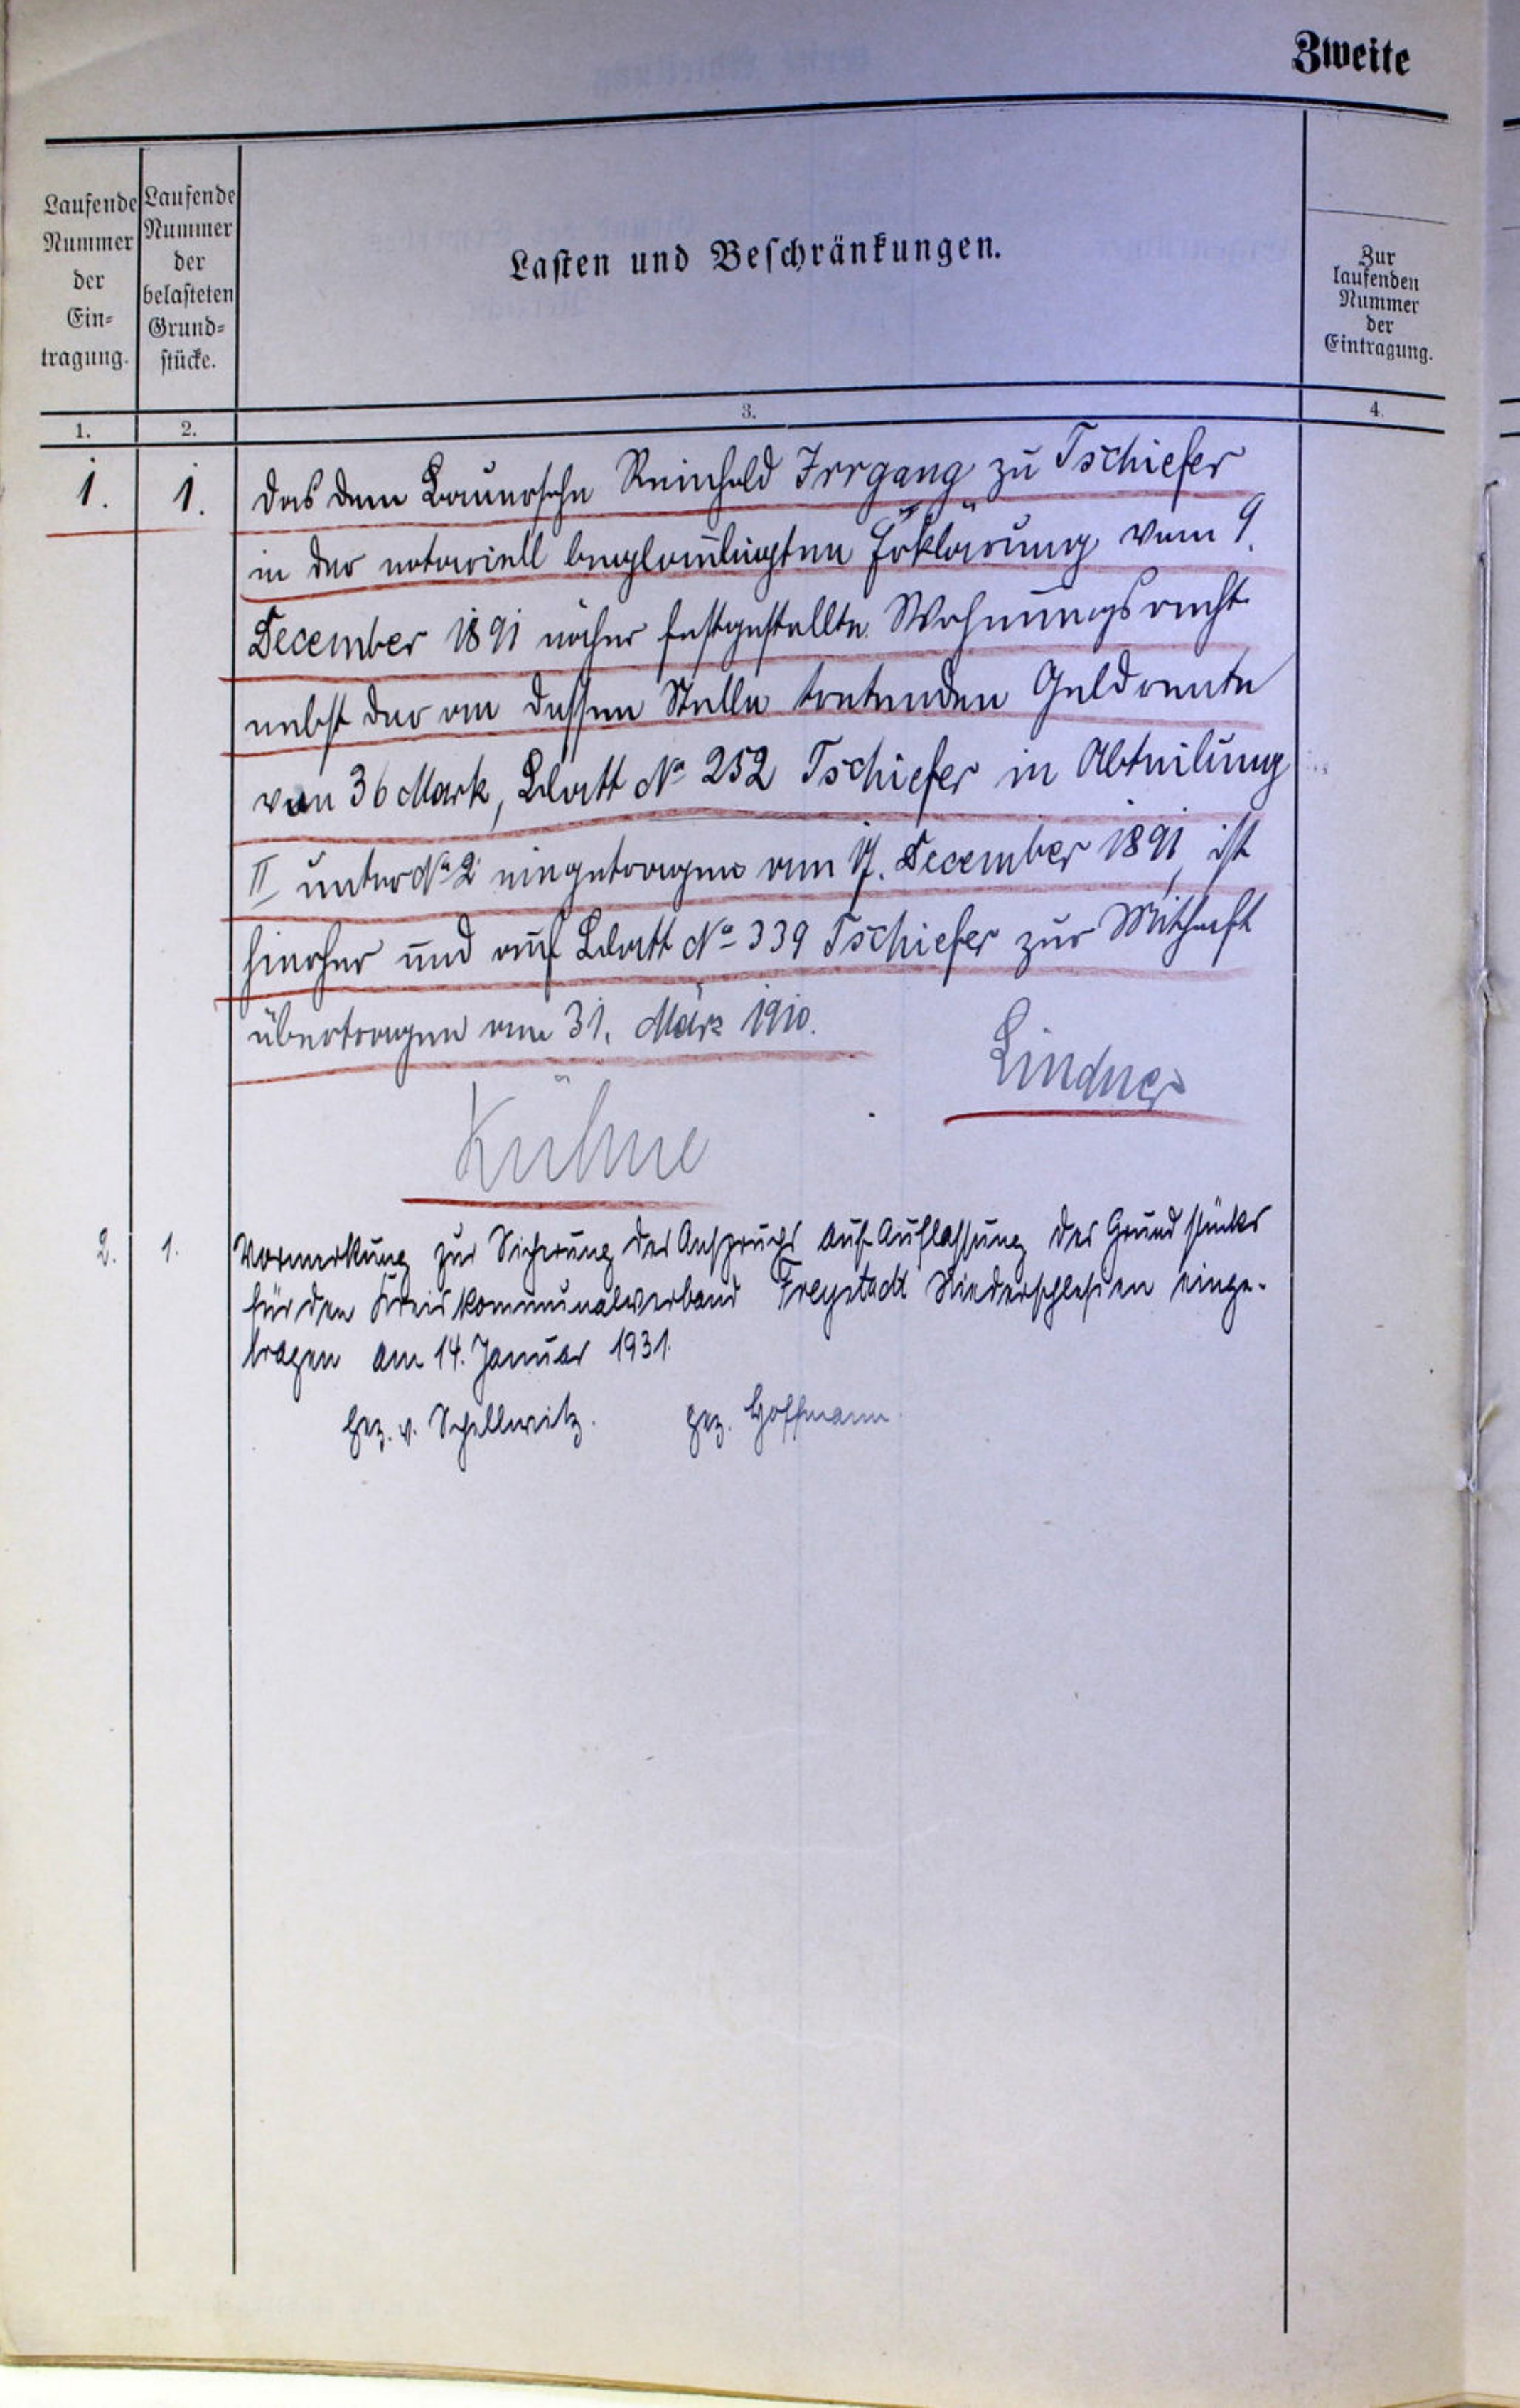 Zweite
Laufende Nummer der Ein=tragung.
Laufende Nummer der belasteten Grund=stücke.
Lasten und Beschränkungen.
Zur laufenden Nummer der Eintragung.
1. 2. 3. 4.
1. 1. Das dem Bauersohn Reinhold Irrgang zu Tschiefer
in der notariell beglaubigten Erklärung vom 9.
December 1891 näher festgestellte Wohnungsrecht
nebst der an dessen Stelle tretenden Geldrente
von 36 Mark, Blatt No 252 Tschiefer in Abteilung
II unter No 2 eingetragen am 17. December 1891, ist
hierher und auf Blatt No 339 Tschiefer zur Mithaft
übertragen am 31. März 1910.
Lindner
Kühne
2. 1. Vormerkung zur Sicherung des Anspruchs auf Auflassung des Grundstücks
für den Kreiskommunalverband Freystadt Niederschlesien einge-
tragen am 14. Januar 1931.
gez. v. Schellwitz. gez. Hoffmann.